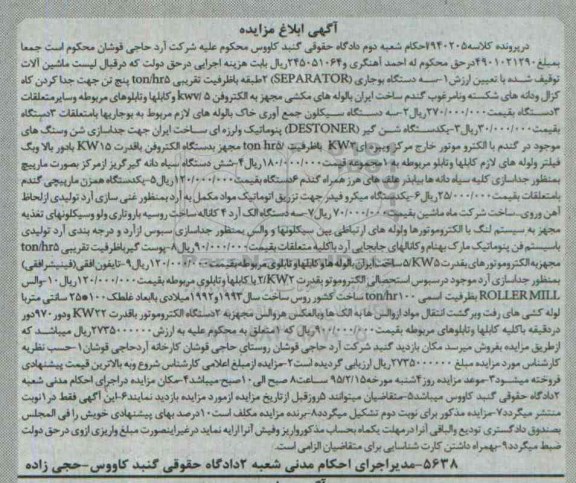 آگهی ابلاغ مزایده
درپرونده کلاسه ۹۴۰۲۰۵ احکام شعبه دوم دادگاه حقوقی گنبد کاووس محکوم علیه شرکت آرد حاجی قوشان محکوم است جمعا
بمبلغ ۴۹۰۱۰۲۱۲۹۰ درحق محکوم له احمد آهنگری و ۲۴۵۰۵۱۰۶۴ ریال بابت هزینه اجرایی درحق دولت که درقبال لیست ماشین آلات
توقیف شده با تعیین ارزش ۱-سه دستگاه بوجاری (SEPARATOR) ۲طبقه باظرفیت تقریبی ton/hr۵ پنج تن جهت جدا کردن کاه
کزال ودانه های شکسته ونامرغوب گندم ساخت ایران بالوله های مکشی مجهز به الکتروفن kwv/۵ وکابلها وتابلوهای مربوطه وسایرمتعلقات
۳دستگاه بقیمت ۲۷۰/۰۰۰/۰۰۰ریال ۲-سه دستگاه سیکلون جمع آوری خاک بالوله های لازم مربوط به بوجاریها بامتعلقات ۳دستگاه
بقیمت ۳۰/۰۰۰/۰۰۰ریال ۳-یکدستگاه شن گیر (DESTONER) پنوماتیک ولرزه ای ساخت ایران جهت جداسازی شن وسنگ های
موجود در گندم با الکترو موتور خارج مرکز ویبره ای KW۳ باظرفیت ton hr۵ مجهز بدستگاه الکتروفن باقدرت KW۱۵ بادور بالا وبگ
فیلتر ولوله های لازم کابلها وتابلو مربوطه به ۱مجموعه قیمت ۱۸۰/۰۰۰/۰۰۰ریال ۴-شش دستگاه سیاه دانه گیرگریز ازمرکز بصورت مارپیچ
بمنظور جداسازی کلیه سیاه دانه ها بیابذر علف های هرز همراه گندم ۶دستگاه بقیمت ۱۲۰/۰۰۰/۰۰۰ریال ۵-یکدستگاه همزن مارپیچی گندم
بامتعلقات بقیمت ۲۵/۰۰۰/۰۰۰ریال ۶-یکدستگاه میکرو فیدر جهت تزریق اتوماتیک مواد مکمل به آرد بمنظور غنی سازی آرد تولیدی ازلحاظ
آهن وروی- ساخت شرکت ماه ماشین بقیمت ۷۰/۰۰۰/۰۰۰ریال ۷-سه دستگاه الک آرد ۴ کاناله ساخت روسیه باروتاری ولو وسیکلونهای تغذیه
مجهز به سیستم لنگ با الکتروموتورها ولوله های ارتباطی بین سیکلونها و والس بمنظور جداسازی سبوس ازآرد و درجه بندی آرد تولیدی
باسیستم فن پنوماتیک مارک بهنام وکانالهای جابجایی آرد باکلیه متعلقات بقیمت ۹۰/۰۰۰/۰۰۰ریال ۸-پوست گیرباظرفیت تقریبی ton/hr۵
مجهزبه الکتروموتورهای بقدرت KW۵/۵ ساخت ایران بالوله ها وکابلها وتابلوی مربوطه بقیمت ۱۲۰/۰۰۰/۰۰۰ریال ۹-تایفون افقی(فینیشرافقی)
بمنظور جداسازی آرد موجود درسبوس استحصالی الکتروموتو بقدرت KW۲/۲ با کابلها وتابلوی مربوطه بقیمت ۱۲۰/۰۰۰/۰۰۰ریال ۱۰-والس
ROLLER MILL باظرفیت اسمی ton/hr۱۰۰ ساخت کشور روس ساخت سال ۱۹۹۳ و۱۹۹۲میلادی باابعاد غلطک ۲۵*۱۰۰ سانتی متربا
لوله کشی های رفت وبرگشت انتقال مواد ازوالس ها به الک ها وبالعکس هروالس مجهزبه ۲دستگاه الکتروموتور باقدرت KW۲۲ ودور ۹۷۰دور
دردقیقه باکلیه کابلها وتابلوهای مربوطه بقیمت ۹۱۰/۰۰۰/۰۰۰ریال که ۱متعلق به محکوم علیه به ارزش ۲۷۳۵۰۰۰۰۰۰ریال میباشد که
ازطریق مزایده بفروش میرسد مکان بازدید گنبد شرکت آرد حاجی قوشان روستای حاجی قوشان کارخانه آردحاجی قوشان ۱-حسب نظریه
کارشناس مورد مزایده مبلغ ۲۷۳۵۰۰۰۰۰۰ریال ارزیابی گردیده است ۲-مزایده ازمبلغ اعلامی کارشناس شروع وبه بالاترین قیمت پیشنهادی
فروخته میشود ۳-موعد مزایده روز ۴شنبه مورخه ۹۵/۲/۱۵ ساعت ۸ صبح الی ۱۰صبح میباشد ۴-مکان مزایده دراجرای احکام مدنی شعبه
۲دادگاه حقوقی گنبد کاووس میباشد ۵-متقاضیان میتوانند ۵روزقبل ازتاریخ مزایده ازمورد مزایده بازدید نمایند ۶-این آگهی فقط در۱نوبت
منتشر میگردد ۷-مزایده مذکور برای نوبت دوم تشکیل میگردد ۸-برنده مزایده مکلف است ۱۰درصد بهای پیشنهادی خویش را فی المجلس
بصندوق دادگستری تودیع والباقی آنرا درمهلت یکماه بحساب مذکورواریز وفیش آنرا ارایه نماید درغیراینصورت مبلغ واریزی ازوی درحق دولت
ضبط میگردد ۹-بهمراه داشتن کارت شناسایی برای متقاضیان الزامی است.
۵۶۳۸-مدیراجرای احکام مدنی شعبه ۲دادگاه حقوقی گنبد کاووس-حجی زاده